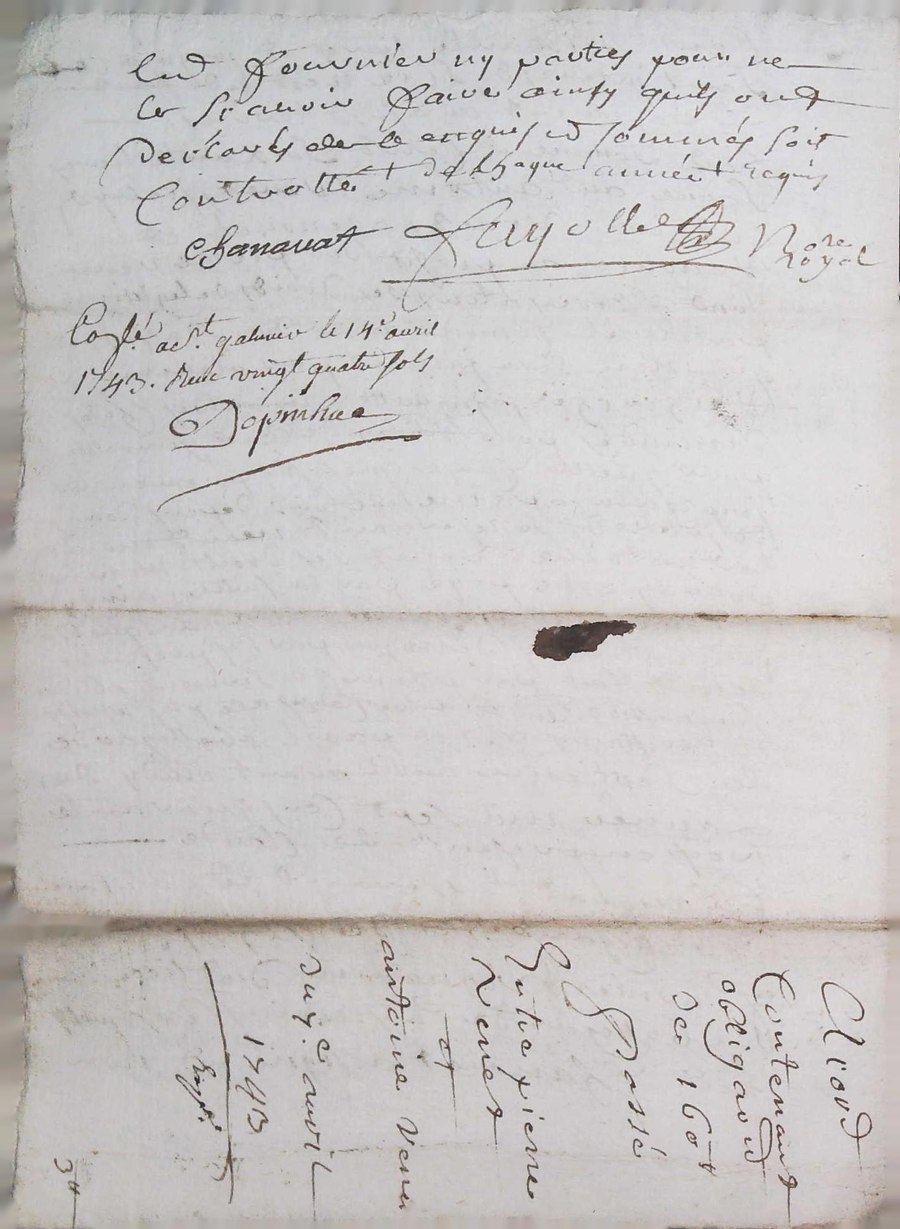 led fournier ny parties pour ne
le scavoir faire ainsy quils ont
declarés de ce enquis et sommés soit
Controllé
chanavat fayolle No.re royal
Con.lé a St galmier le 14.e avril
1743. Reçu vingt quatre sols
Depinhac
accord
Contenant
obligaon
de 160
Passé
Entre pierre
Venet
et
antoine Venet
du 7.e avril
1743
Exp.é